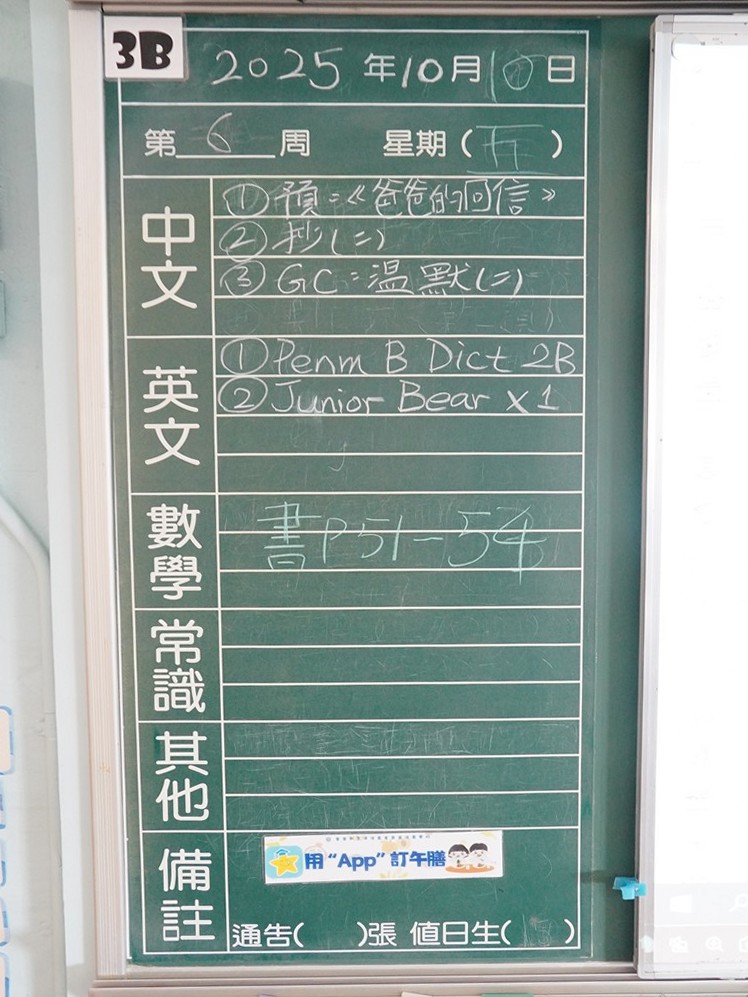 3B
2025 年10月10日
第 6 周 星期(五)
中文
① 預:《爸爸的回信》
② 抄(二)
③ GC:溫默(二)
英文
① Penm B Dict 2B
② Junior Bear x 1
數學
書P51-54
常識
其他
備註
用“App”訂午膳
通告( )張 值日生( )